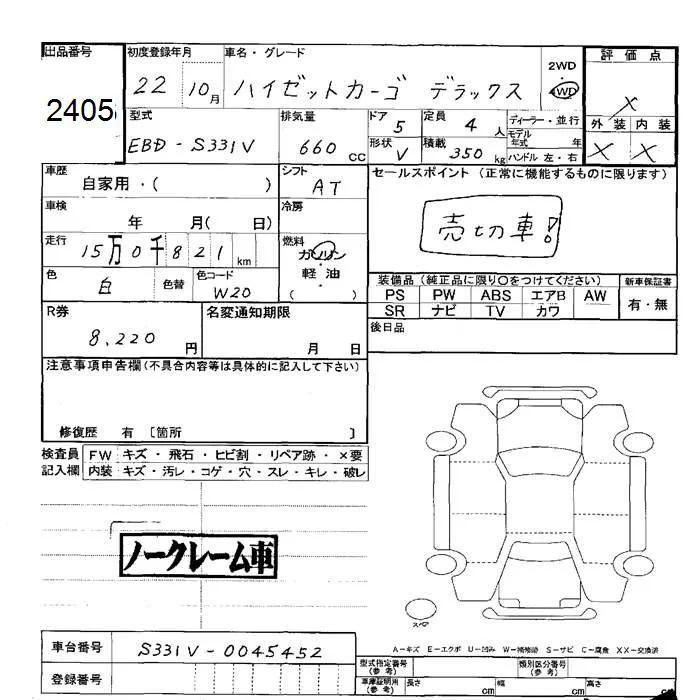 出品番号 初度登録年月 車名・グレード 評価点
2405 22 10月 ハイゼットカーゴ デラックス 2WD ・ 4WD X
型式 排気量 ドア 定員 ディーラー・並行 外装 内装
EBD-S331V 660cc 5 4人 モデル年式 年 X X
形状 V 積載 350kg ハンドル 左・右
車歴 シフト セールスポイント (正常に機能するものに限ります)
自家用・( ) AT
車検 冷房 売切車!
年 月( 日)
走行 燃料
15万0千821km ガソリン
・
色 色替 色コード 軽油
白 W20 ( )
装備品 (純正品に限り○をつけてください) 新車保証書
PS PW ABS エアB AW 有・無
SR ナビ TV カワ
R券 名変通知期限 後日品
8,220円 月 日
注意事項申告欄(不具合内容等は具体的に記入して下さい)
修復歴 有 〔箇所 〕
検査員 FW キズ・飛石・ヒビ割・リペア跡・×要
記入欄 内装 キズ・汚レ・コゲ・穴・スレ・キレ・破レ
ノークレーム車
スペア
A－キズ E－エクボ U－凹み W－補修跡 S－サビ C－腐食 XX－交換済
車台番号 S331V-0045452
型式指定番号(参考) 類別区分番号(参考)
登録番号 車庫証明用(参考) 長さ cm 幅 cm 高さ cm